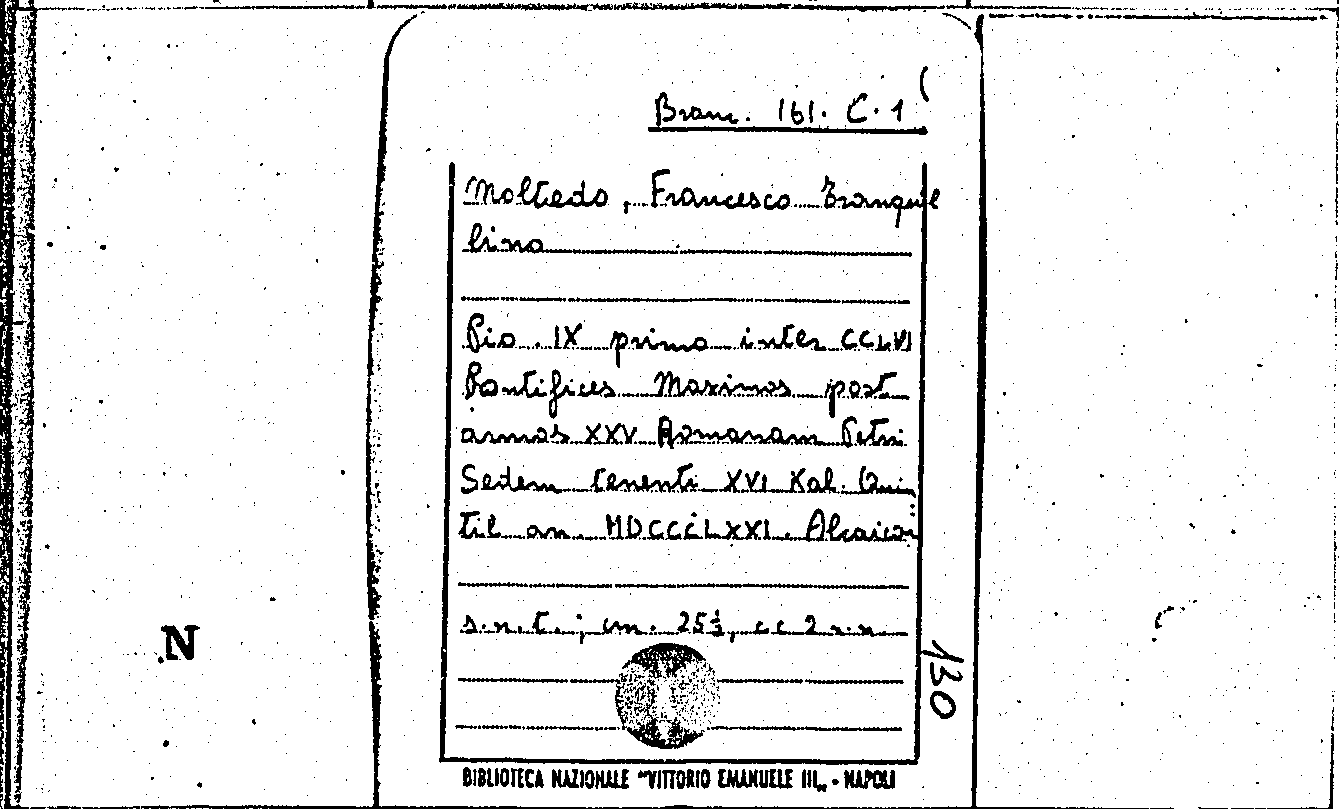 Branc. 161. C. 1 (
Moltedo, Francesco Tranquil
lino
Pio IX primo inter CCLVI
Pontifices Maximos post
annos XXV Romanam Petri
Sedem tenenti XVI Kal. Quin
til an. MDCCCLXXI. Alcaicon
s.n.t.; cm. 25½, cc 2 s.n.
130
N
BIBLIOTECA NAZIONALE "VITTORIO EMANUELE III„ - NAPOLI